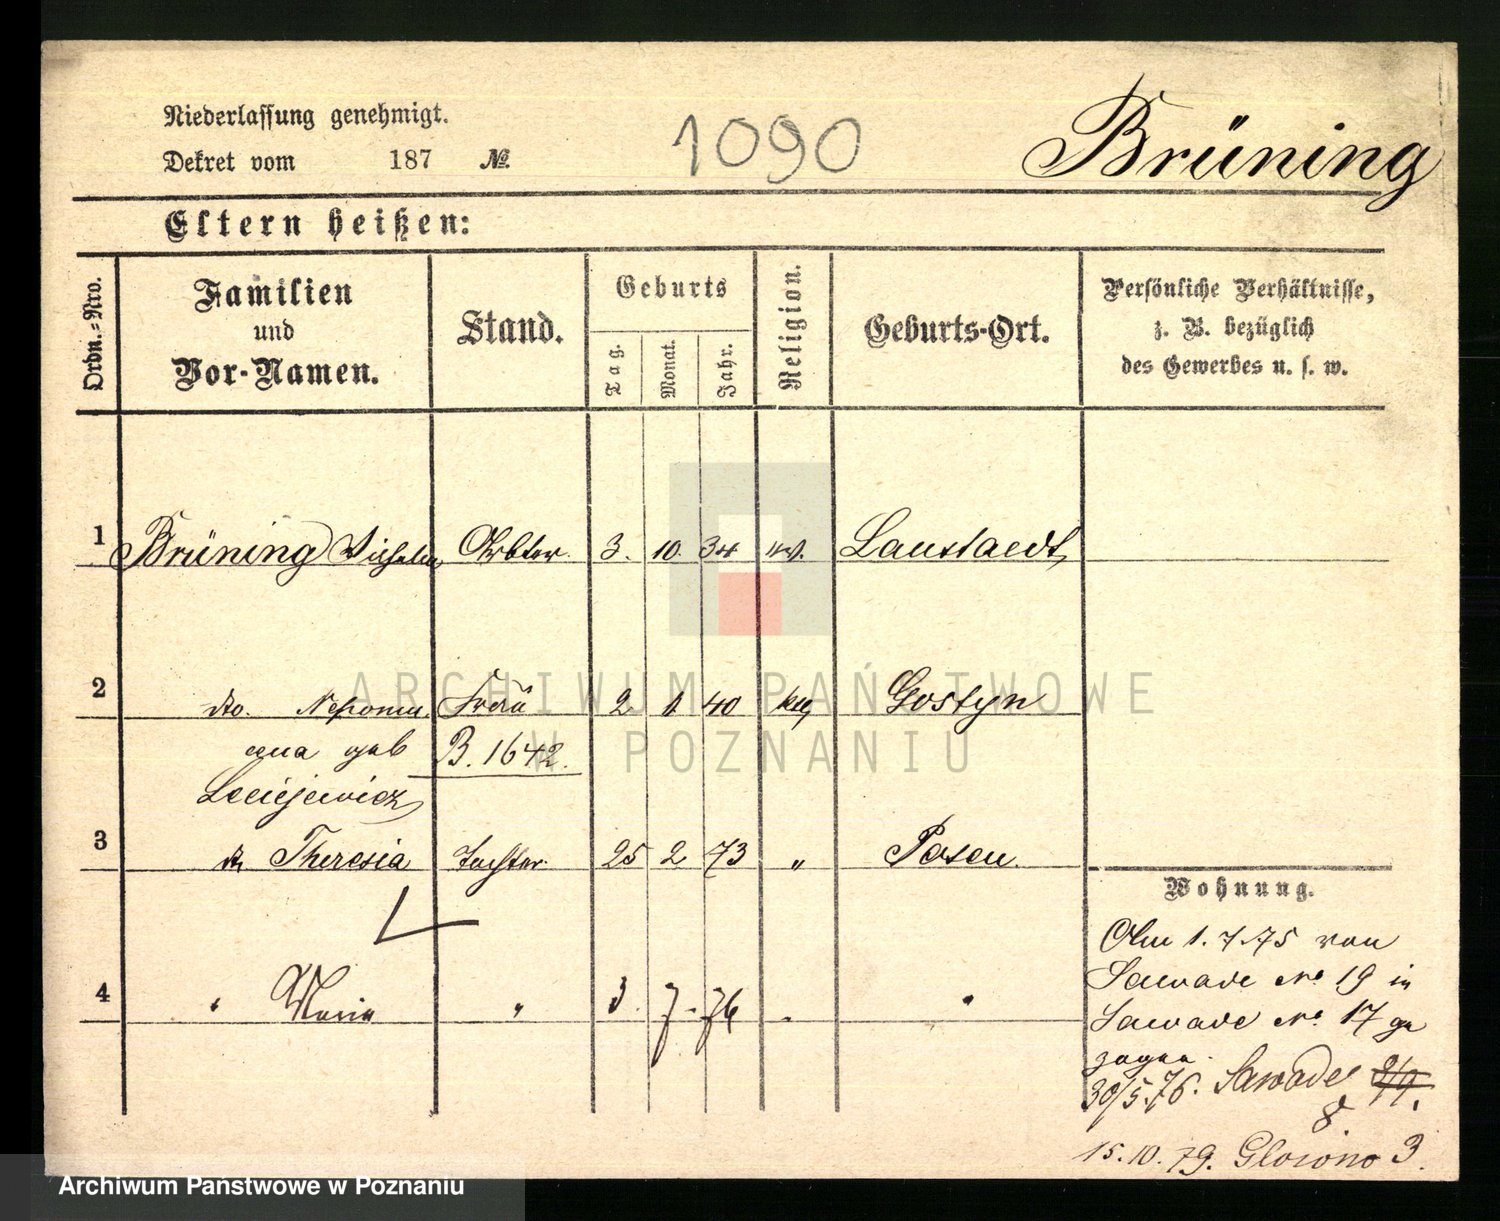 Niederlassung genehmigt.
Dekret vom 187 №
1090
Brüning
Eltern heißen:
Ordn.=Nro.
Familien
und
Vor-Namen.
Stand.
Geburts
Tag.
Monat.
Jahr.
Religion.
Geburts-Ort.
Persönliche Verhältnisse,
z. B. bezüglich
des Gewerbes u. s. w.
1 Brüning Wilhelm Arbter. 3. 10. 34 ev. Laustaedt
2 do. Nepomu. Frau 2 1. 40 kth Gostyn
cena geb B. 1642.
Leciejewicz
3 do Theresia Tochter. 25 2 73 " Posen.
4 " Maria " 3. 7. 76 " "
Wohnung.
Am 1. 7. 75 von
Sawade No 19 in
Sawade No 17 ge
zogen.
30/5.76. Sawade
8
15.10.79. Glowno 3.
ARCHIWUM PAŃSTWOWE
W POZNANIU
Archiwum Państwowe w Poznaniu